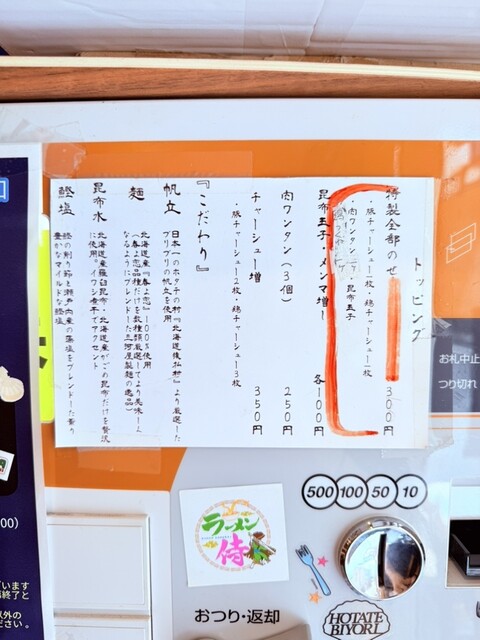 トッピング
特製全部のせ 300円
・豚チャーシュー1枚・鶏チャーシュー1枚
・肉ワンタン
・昆布玉子
昆布玉子・メンマ増し 各100円
肉ワンタン(3個) 250円
チャーシュー増 350円
・豚チャーシュー2枚・鶏チャーシュー3枚
『こだわり』
帆立
日本一のホタテの村『北海道猿払村』より厳選した
プリプリの帆立を使用
麺
北海道産『春よ恋』100%使用
(春よ恋品種だけを数種類厳選してより美味しく
なるようにブレンドした三河屋製麺の逸品)
昆布水
北海道産羅臼昆布・北海道産がごめ昆布だけを贅沢
に使用。イワシ煮干でアクセント
鰹塩
鰹の削り節と瀬戸内産の藻塩をブレンドした香り
豊かなマイルドな鰹塩
お札中止
つり切れ
500 100 50 10
ラーメン
侍
おつり・返却
HOTATE
BIYORI
00)
ざいます
終了と
以外の
ださい。